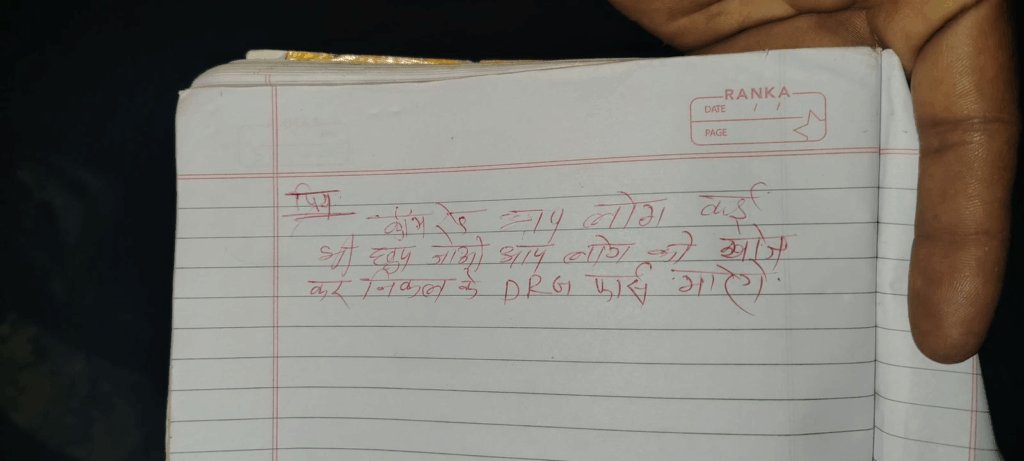 RANKA
DATE / /
PAGE
प्रिय
आप लोग कई
भी छुप जाओ आप लोग को खोज
कर निकल के DRG फार्स मारेगे